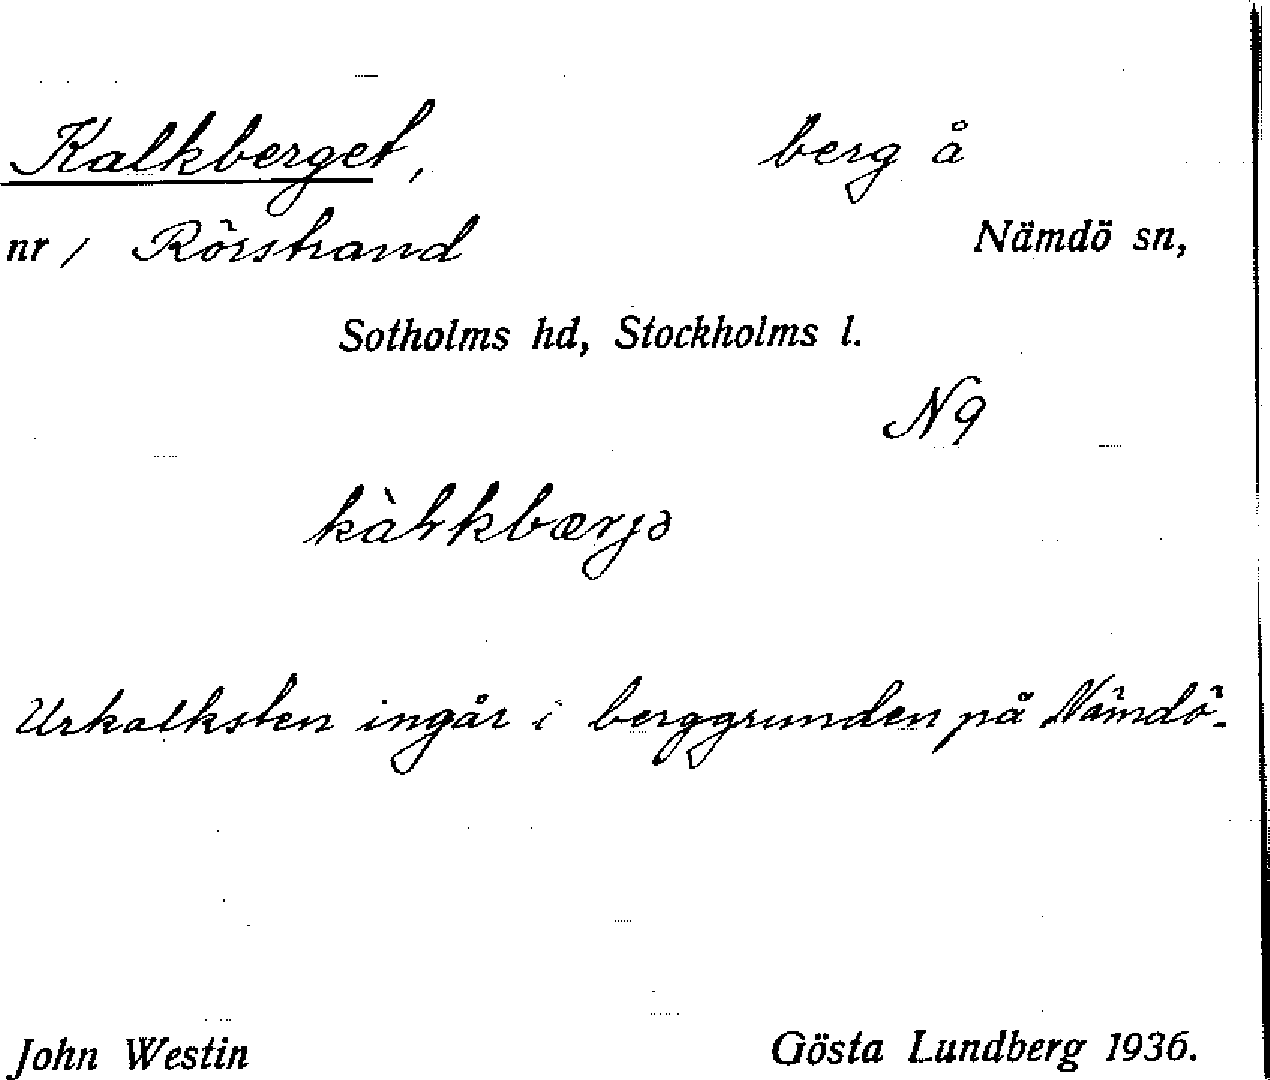 Kalkberget, berg å
nr 1 Rörstrand Nämdö sn,
Sotholms hd, Stockholms l.
N9
kàlkbærjə
Urkalksten ingår i berggrunden på Nämdö.
John Westin Gösta Lundberg 1936.